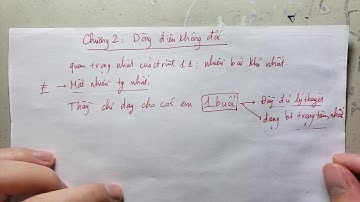 Chương 2: Dòng điện không đổi
quan trọng nhất của ctrình 11; nhiều bài khó nhất.
→ Mất nhiều tg nhất
Thầy chỉ dạy cho các em 1 buổi → Đầy đủ lý thuyết
→ dạng bt trọng tâm nhất